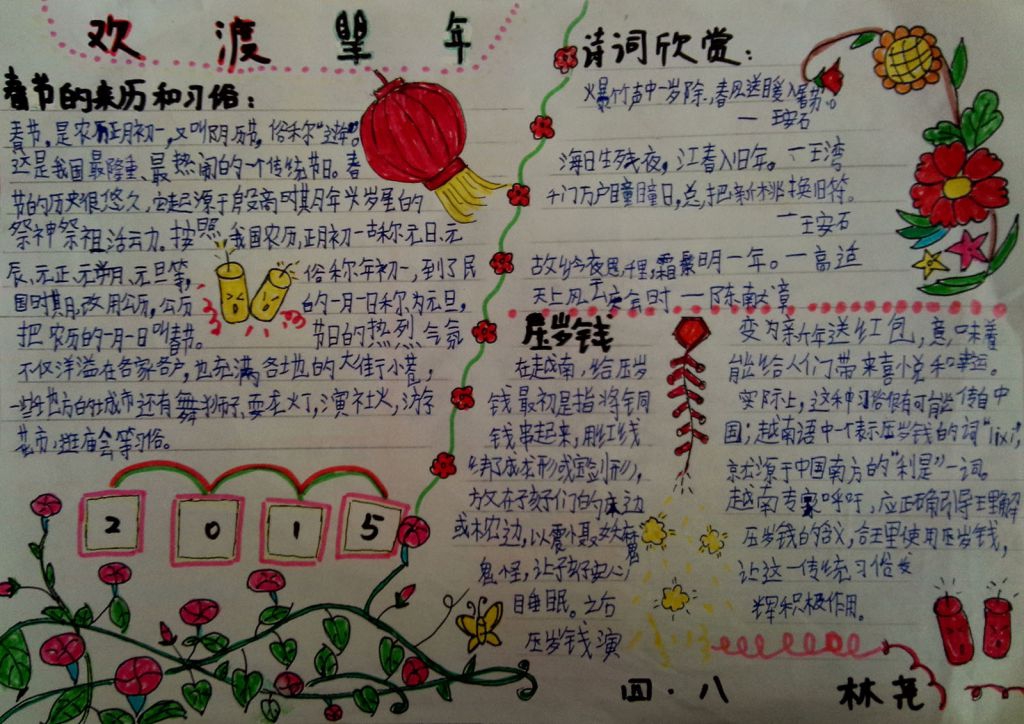 欢渡里年
春节的来历和习俗：
春节，是农历正月初一，又叫阴历节，俗称“过年”。
这是我国最隆重、最热闹的一个传统节日。春
节的历史很悠久，它起源于殷商时期年头岁尾的
祭神祭祖活动。按照我国农历，正月初一古称元日、元
辰、元正、元朔、元旦等，
俗称年初一，到了民
国时期，改用公历，公历
的一月一日称为元旦，
把农历的一月一日叫春节。
节日的热烈气氛
不仅洋溢在各家各户，也充满各地的大街小巷，
一些地方的街市还有舞狮子，耍龙灯，演社火，游
花市，逛庙会等习俗。
2015
诗词欣赏：
爆竹声中一岁除，春风送暖入屠苏。
一王安石
海日生残夜，江春入旧年。一王湾
千门万户曈曈日，总把新桃换旧符。
一王安石
故乡今夜思千里，霜鬓明一年。一高适
天上风云庆会时一陈献章
压岁钱
在越南，给压岁
钱最初是指将铜
钱串起来，用红线
绑成龙形或宝剑形，
放在孩子们的床边
或枕边，以震慑妖魔
鬼怪，让孩子安心
睡眠。之后
压岁钱演
变为新年送红包，意味着
能给人们带来喜悦和幸运。
实际上，这种习俗很有可能传自中
国；越南语中一个表示压岁钱的词“lixi”，
就源于中国南方的“利是”一词。
越南专家呼吁，应正确引导、理解
压岁钱的含义，合理使用压岁钱，
让这一传统习俗发
挥积极作用。
四·八
林尧